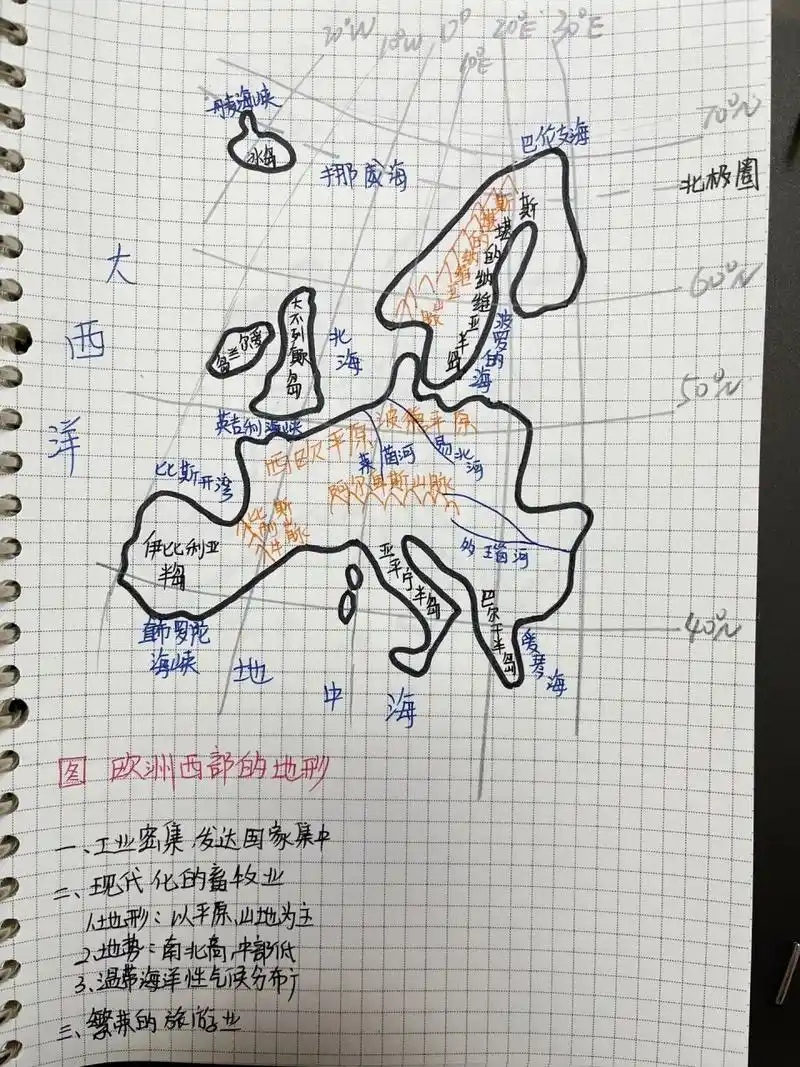 20°W
10°W
0°
10°E
20°E
30°E
70°N
丹麦海峡
冰岛
挪威海
巴伦支海
北极圈
斯堪的纳维亚山脉
斯堪的纳维亚半岛
60°N
大西洋
爱尔兰岛
大不列颠岛
北海
波罗的海
50°N
英吉利海峡
西欧平原
波德平原
莱茵河
易北河
比斯开湾
阿尔卑斯山脉
比利牛斯山脉
伊比利亚
半岛
多瑙河
亚平宁半岛
巴尔干半岛
40°N
直布罗陀
海峡
爱琴海
地中海
图 欧洲西部的地形
一、工业密集,发达国家集中
二、现代化的畜牧业
1.地形:以平原、山地为主
2.地势:南北高,中部低
3.温带海洋性气候分布广
三、繁荣的旅游业